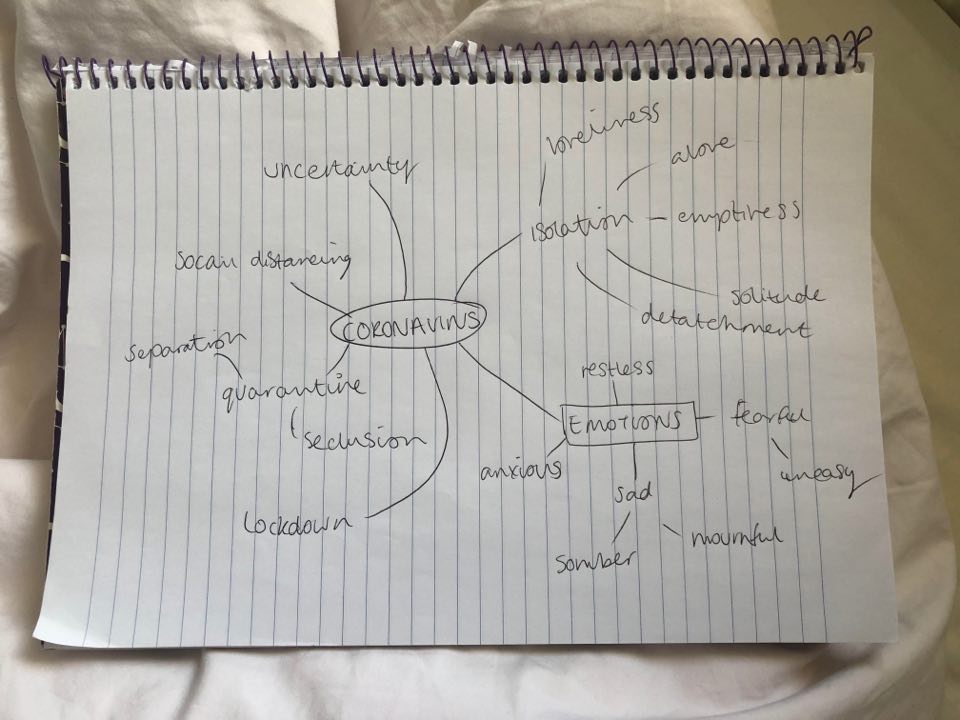 loneliness
alone
uncertainty
isolation - emptiness
socail distancing
solitude
detatchment
CORONAVIRUS
separation
restless
quarantine
EMOTIONS - fearful
seclusion
anxious
uneasy
sad
lockdown
mournful
somber